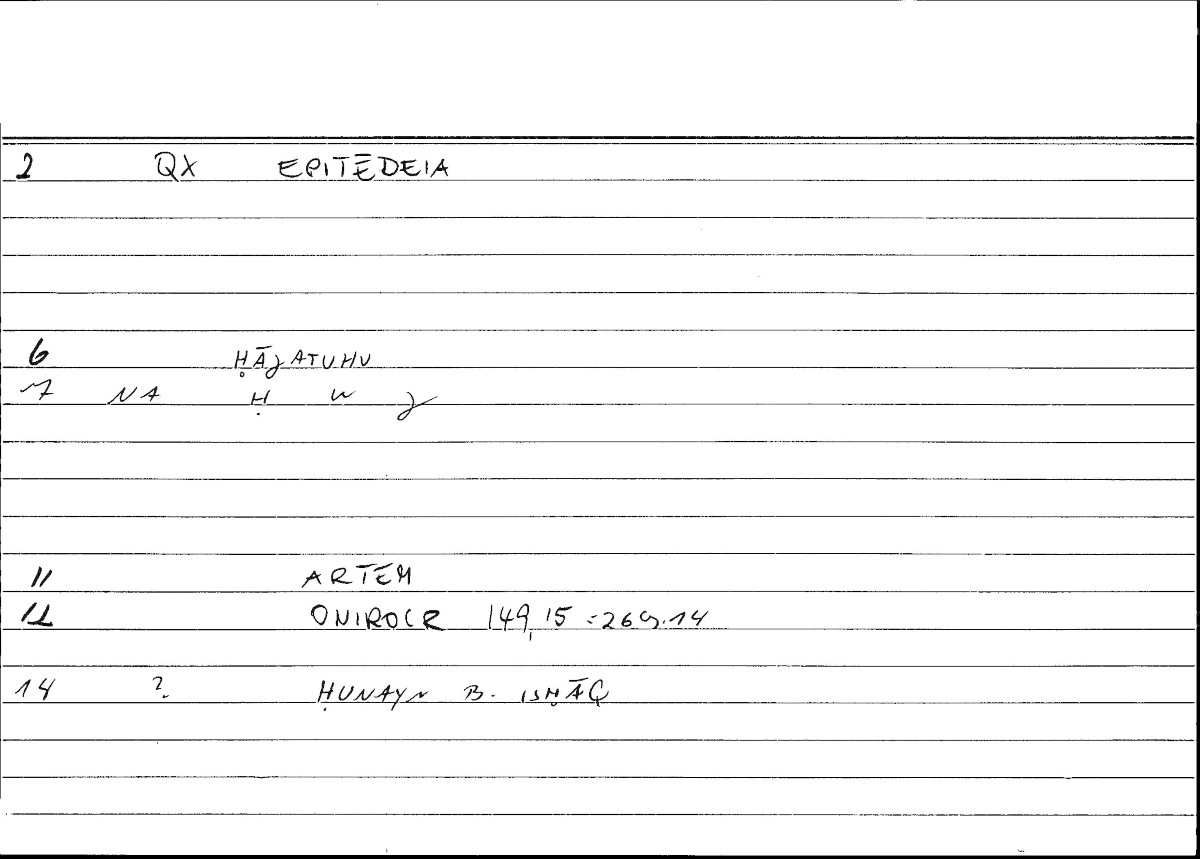 2 QX EPITĒDEIA
6 ḤĀJATUHU
7 NA Ḥ W J
11 ARTEM
12 ONIROCR 149,15 = 269.14
14 ? ḤUNAYN B. ISḤĀQ